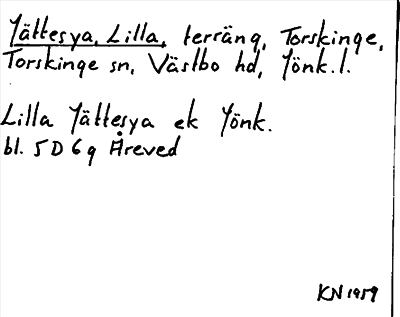 Jättesya, Lilla, terräng, Torskinge,
Torskinge sn, Västbo hd, Jönk.l.
Lilla Jättesya ek Jönk.
bl. 5D 6g Åreved
KN 1959